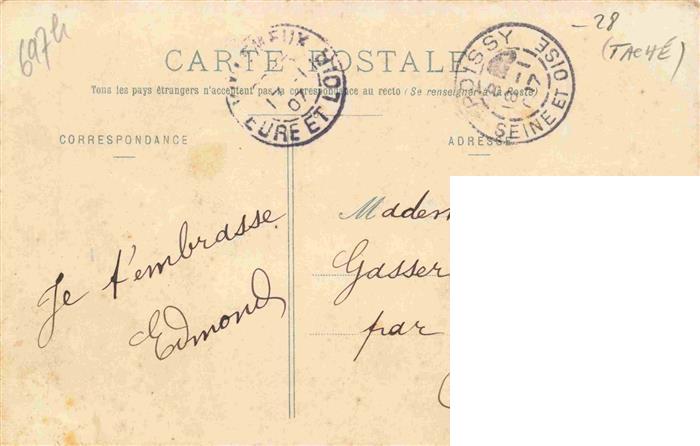 697h
-28
(TACHÉ)
CARTE POSTALE
Tous les pays étrangers n'acceptent pas la correspondance au recto (Se renseigner à la Poste)
EURE ET LOIR
07
POISSY
SEINE ET OISE
CORRESPONDANCE
ADRESSE
Je t'embrasse
Edmond
Madem
Gasser
par